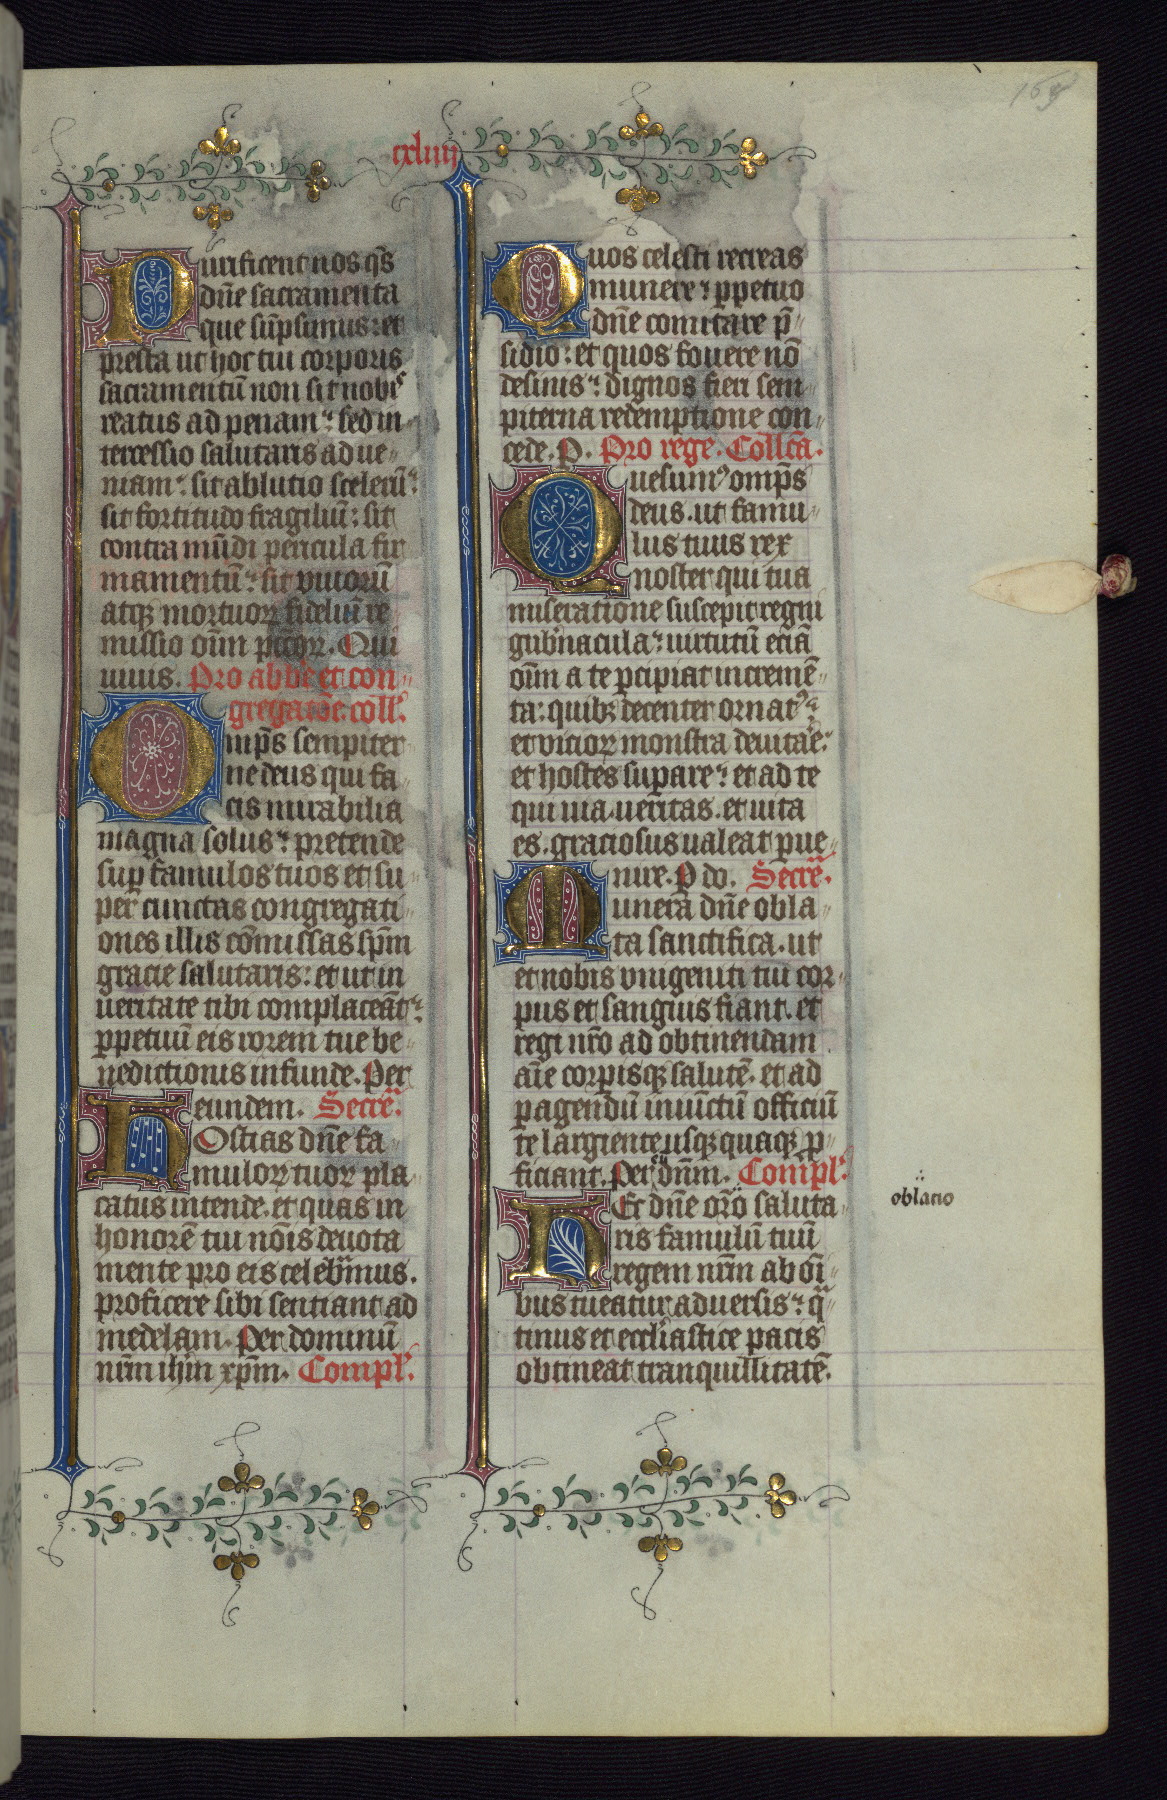 cxliiij
Purificent nos q̄s
dn̄e sacramenta
que sūpsimus: et
presta ut hoc tui corporis
sacramentū non sit nobis
reatus ad penam: sed in-
tercessio salutaris ad ue-
niam: sit ablutio scelerū:
sit fortitudo fragiliū: sit
contra mūdi pericula fir
mamentū: sit viuorū
atqꝫ mortuoꝝ fideliū re
missio oīm Qui
uiuis. Pro abbe et con-
gregatōe. coll'.
Omp̄s sempiter-
ne deus qui fa-
cis mirabilia
magna solus: pretende
sup̄ famulos tuos et su-
per cunctas congregati-
ones illis cōmissas sp̄m
gracie salutaris: et ut in
ueritate tibi complaceāt:
ꝑpetuū eis rorem tue be-
nedictionis infunde. Per
eundem. Secre͞.
HOstias dn̄e fa-
muloꝝ tuoꝝ pla-
catus intende. et quas in
honorē tui nōis deuota
mente pro eis celebramus.
proficere sibi sentiant ad
medelam. Per dominū
nr̄m ihm̄ xp̄m. Compl'.
Quos celesti recreas
munere: ꝑpetuo
dn̄e comitare p̄-
sidio: et quos fouere nō
desinis: dignos fieri sem-
piterna redemptione con-
cede. P. Pro rege. Collc̄a.
Quesumꝰ omp̄s
deus. ut famu-
lus tuus rex
noster qui tua
miseratione suscepit regni
gub̄nacula: uirtutū eciā
oīm a te ꝑcipiat incremē-
ta: quibꝫ decenter ornatꝰ:
et vicioꝝ monstra deuitare:
et hostes suꝑare: et ad te
qui uia. ueritas. et uita
es. graciosus ualeat ꝑue-
nire. P do. Secre͞.
Munera dn̄e obla-
ta sanctifica. ut
et nobis vnigeniti tui cor-
pus et sanguis fiant. et
regi nr̄o ad obtinendam
aīe corꝑisqꝫ salutē. et ad
ꝑagendū iniūctū officiū
te largiente usqꝫquaqꝫ ꝓ-
ficiant. Per dn̄m. Compl'.
HEc dn̄e orō saluta-
ris famulū tuū
regem nr̄m ab ōi-
bus tueatur aduersis: q̄-
tinus et eccl'iastice pacis
obtineat tranquillitatē.
oblacio